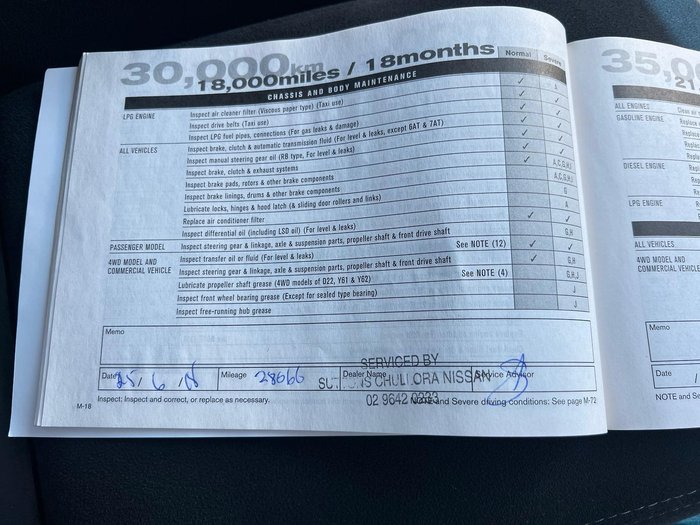 30,000km
18,000miles / 18months
Normal Severe
CHASSIS AND BODY MAINTENANCE
LPG ENGINE Inspect air cleaner filter (Viscous paper type) (Taxi use) ✓ A
Inspect drive belts (Taxi use) ✓ ✓
Inspect LPG fuel pipes, connections (For gas leaks & damage) ✓ ✓
ALL VEHICLES Inspect brake, clutch & automatic transmission fluid (For level & leaks, except 6AT & 7AT) ✓ ✓
Inspect manual steering gear oil (RB type, For level & leaks) ✓ ✓
Inspect brake, clutch & exhaust systems
Inspect brake pads, rotors & other brake components A,C,G,H,J
Inspect brake linings, drums & other brake components A,C,G,H,J
Lubricate locks, hinges & hood latch (& sliding door rollers and links) G
Replace air conditioner filter A
Inspect differential oil (including LSD oil) (For level & leaks) ✓ ✓
PASSENGER MODEL Inspect steering gear & linkage, axle & suspension parts, propeller shaft & front drive shaft G,H
4WD MODEL AND COMMERCIAL VEHICLE Inspect transfer oil or fluid (For level & leaks) See NOTE (12) ✓ ✓
Inspect steering gear & linkage, axle & suspension parts, propeller shaft & front drive shaft ✓ G,H
Lubricate propeller shaft grease (4WD models of D22, Y61 & Y62) See NOTE (4) G,H,J
Inspect front wheel bearing grease (Except for sealed type bearing) J
Inspect free-running hub grease J
Memo
SERVICED BY
Date 25/6/18 Mileage 28066 Dealer Name Service Advisor
SUTTONS CHULLORA NISSAN
02 9642 0233
M-18 Inspect: Inspect and correct, or replace as necessary. NOTE and Severe driving conditions: See page M-72
35,0
21
ALL ENGINES Clean air
GASOLINE ENGINE Replace
Replace
DIESEL ENGINE
LPG ENGINE
ALL VEHICLES
4WD MODEL AND
COMMERCIAL VEHICLE
Memo
Date /
NOTE and Sev